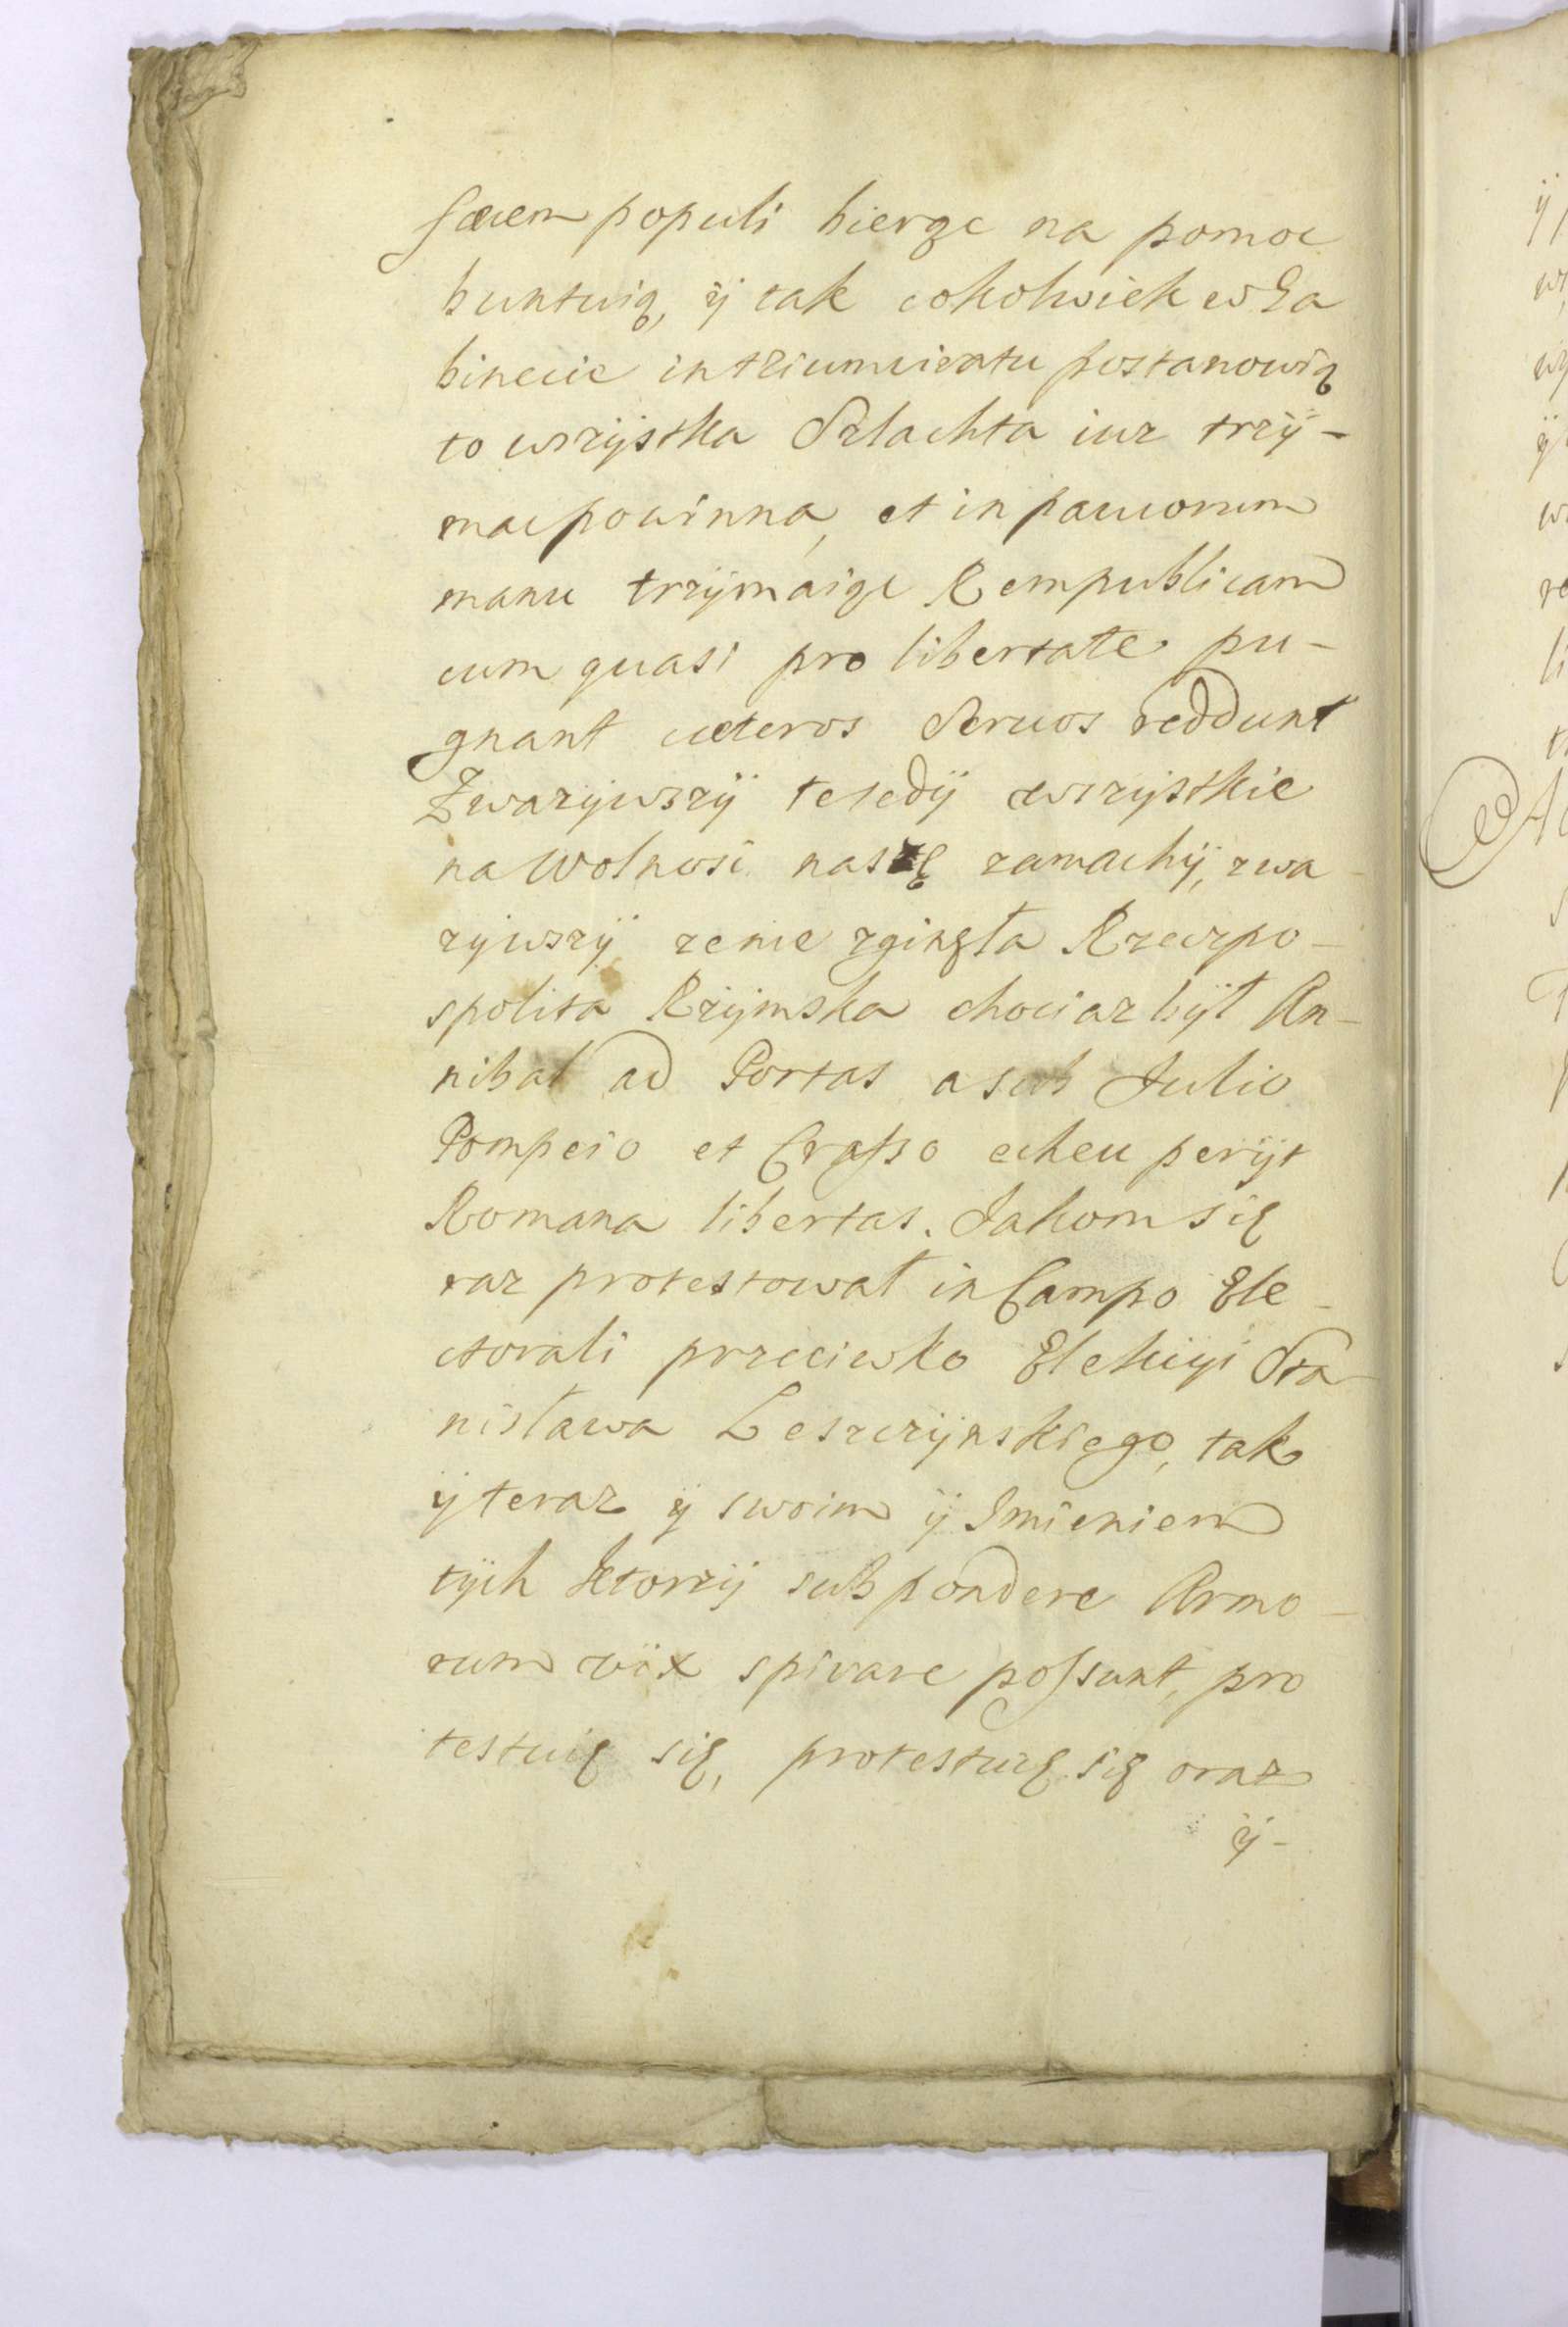 fæcem populi bierąc na pomoc
buntuią, ÿ tak cokolwiek w Ga
binecie in triumviratu postanowią
to wszÿstka Szlachta iuz trzÿ-
mac powinna, et in paucorum
manu trzÿmaiąc Rempublicam
cum quasi pro libertate pu-
gnant cæteros Servos reddunt
Zwazÿwszÿ te tedÿ wszÿstkie
na Wolnosc naszę zamachÿ, zwa-
zÿwszÿ ze nie zginęła Rzeczpo-
spolita Rzÿmska chociaz bÿł An-
nibal ad Portas a sub Julio
Pompeio et Crasso eheu perÿt
Romana libertas. Jakom się
raz protestował in Campo Ele-
ctorali przeciwko Elekcÿi Sta-
nisława Leszczÿnskiego, tak
ÿ teraz ÿ swoim ÿ Imieniem
tÿch ktorzÿ sub pondere Armo-
rum vix spirare possunt, pro
testuię się, protestuię się oraz
ÿ-